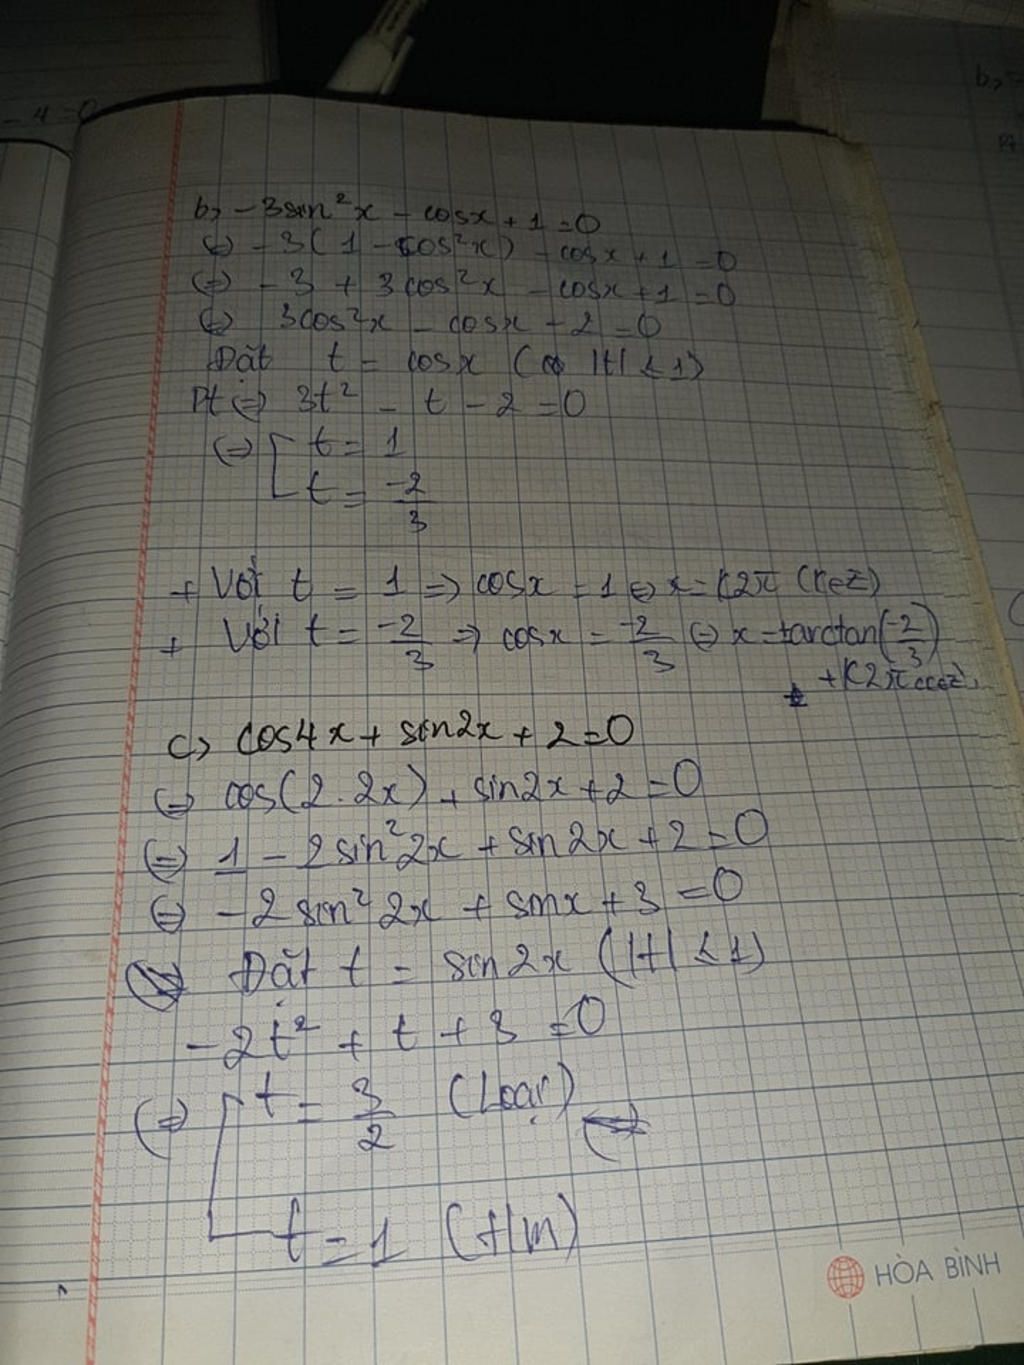 - 4 = 0
b, - 3sin²x - cosx + 1 = 0
(=) - 3(1 - cos²x) - cosx + 1 = 0
(=) - 3 + 3cos²x - cosx + 1 = 0
(=) 3cos²x - cosx - 2 = 0
Đặt t = cosx ( |t| ≤ 1)
Pt (=) 3t² - t - 2 = 0
(=) [ t = 1
t = -2/3
+ Với t = 1 => cosx = 1 (=) x = k2π (k∈Z)
+ Với t = -2/3 => cosx = -2/3 (=) x = ±arctan(-2/3)
+ k2π (k∈Z)
c, cos4x + sin2x + 2 = 0
(=) cos(2.2x) + sin2x + 2 = 0
(=) 1 - 2sin²2x + sin2x + 2 = 0
(=) - 2sin²2x + sinx + 3 = 0
Đặt t = sin2x (|t| ≤ 1)
- 2t² + t + 3 = 0
(=) [ t = 3/2 (Loại)
t = 1 (t/m)
HÒA BÌNH